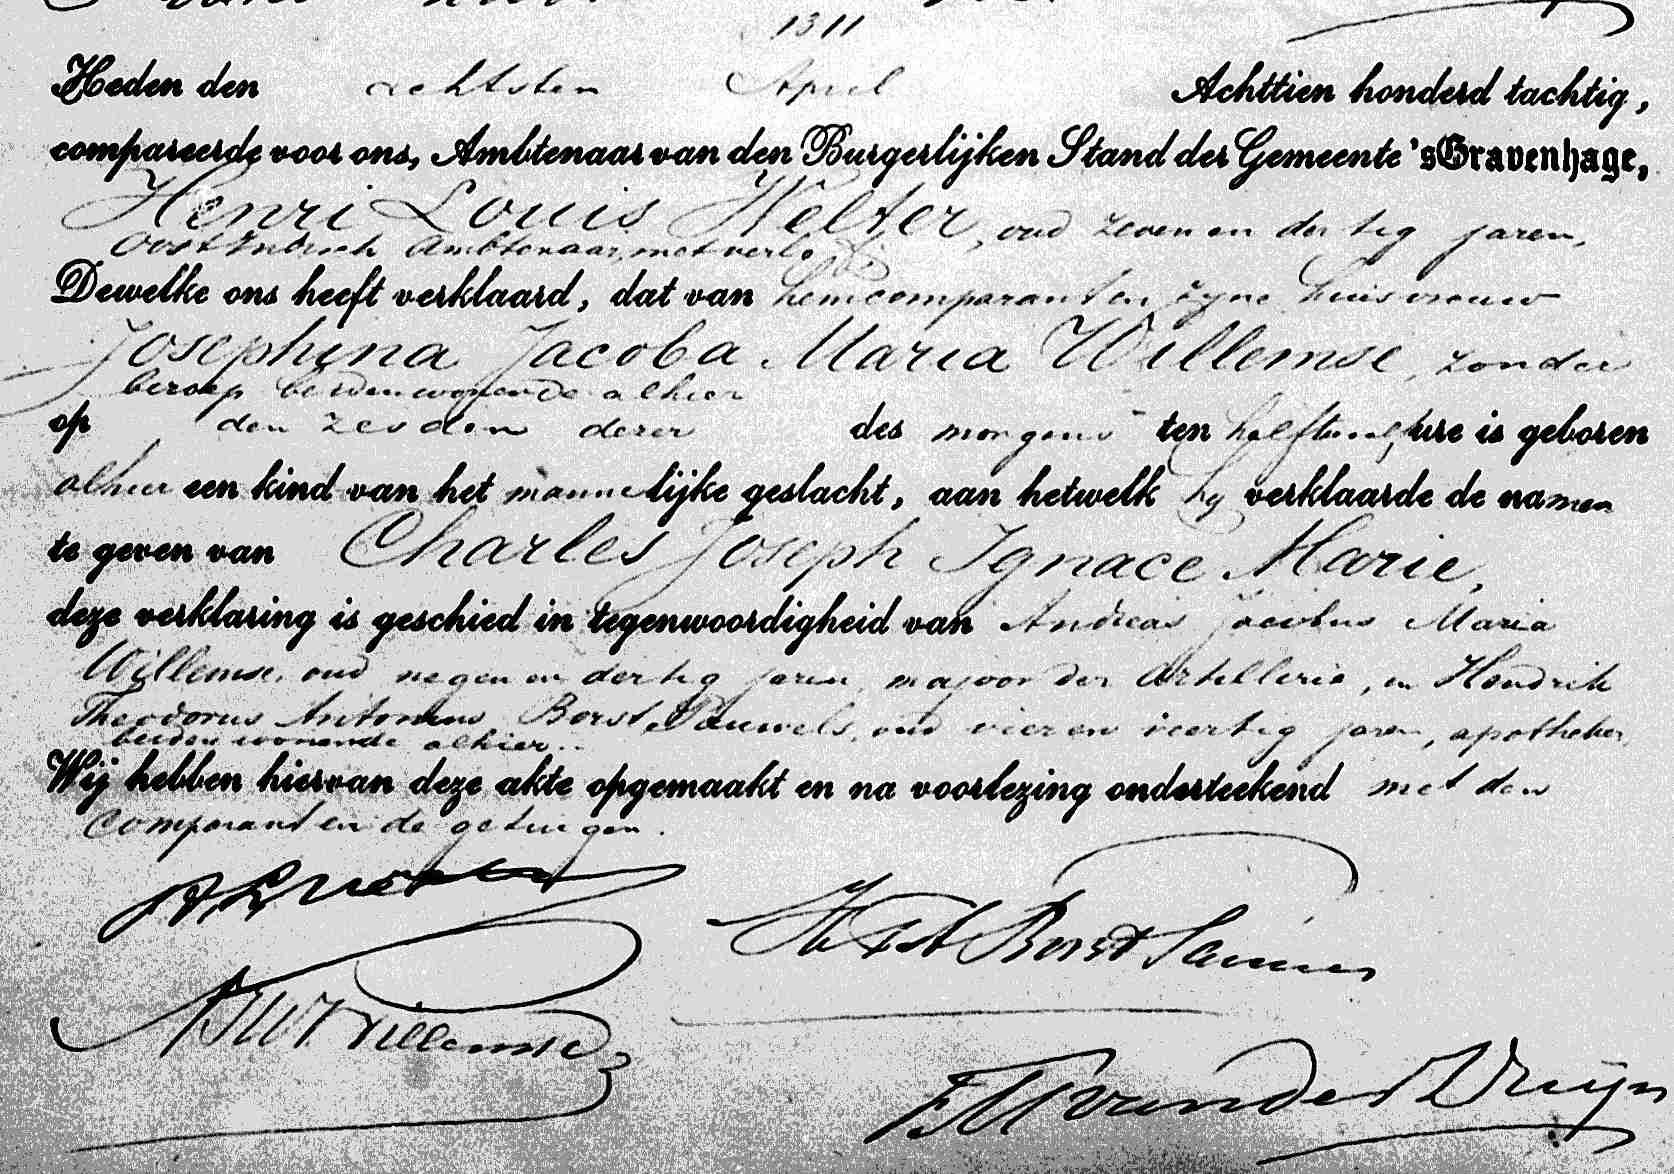 1311
Heden den achtsten April Achttien honderd tachtig,
compareerde voor ons, Ambtenaar van den Burgerlijken Stand der Gemeente 'sGravenhage,
Henri Louis Welter, oud zeven en dertig jaren,
Oost Indisch Ambtenaar, met verlof
Dewelke ons heeft verklaard, dat van hem comparant en zyne huisvrouw
Josephina Jacoba Maria Willemse, zonder
beroep beiden wonende alhier
op den zesden dezer des morgens ten half twaalf ure is geboren
alhier een kind van het mannelijke geslacht, aan hetwelk hy verklaarde de namen
te geven van Charles Joseph Ignace Marie,
deze verklaring is geschied in tegenwoordigheid van Andreas Jacobus Maria
Willemse, oud negen en dertig jaren, majoor der Artillerie, en Hendrik
Theodorus Antonius Borst Pauwels, oud vier en veertig jaren, apotheker,
beiden wonende alhier.
Wij hebben hiervan deze akte opgemaakt en na voorlezing onderteekend met den
Comparant en de getuigen.
HLWelter
HThA Borst Pauwels
AJMWillemse